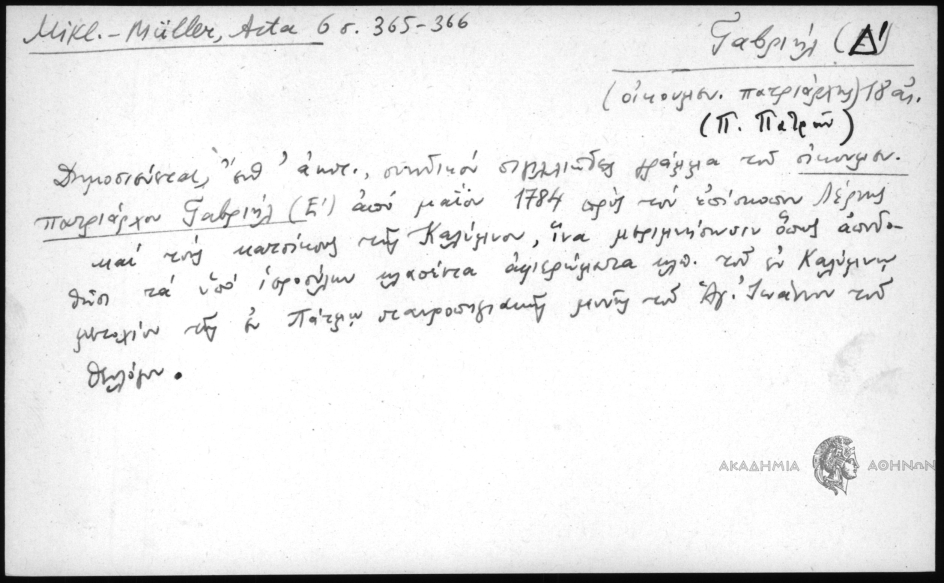 Mikl.-Müller, Acta 6 σ. 365-366
Γαβριήλ (Δ')
(οἰκουμεν. πατριάρχης) 18 αἰ.
(Π. Πατρῶν)
Δημοσιεύεται, ἔνθ' ἀνωτ., συνοδικόν σιγιλλιῶδες γράμμα τοῦ οἰκουμεν.
πατριάρχου Γαβριήλ (Ε') ἀπό μαΐου 1784 πρός τόν ἐπίσκοπον Λέρνης
καί τούς κατοίκους τῆς Καλύμνου, ἵνα μεριμνήσωσιν ὅπως ἀποδο-
θῶσι τά ὑπό ἱεροσύλων κλαπέντα ἀφιερώματα κλπ. τοῦ ἐν Καλύμνῳ
μετοχίου τῆς ἐν Πάτμῳ σταυροπηγιακῆς μονῆς τοῦ Ἁγ. Ἰωάννου τοῦ
Θεολόγου.
ΑΚΑΔΗΜΙΑ ΑΘΗΝΩΝ